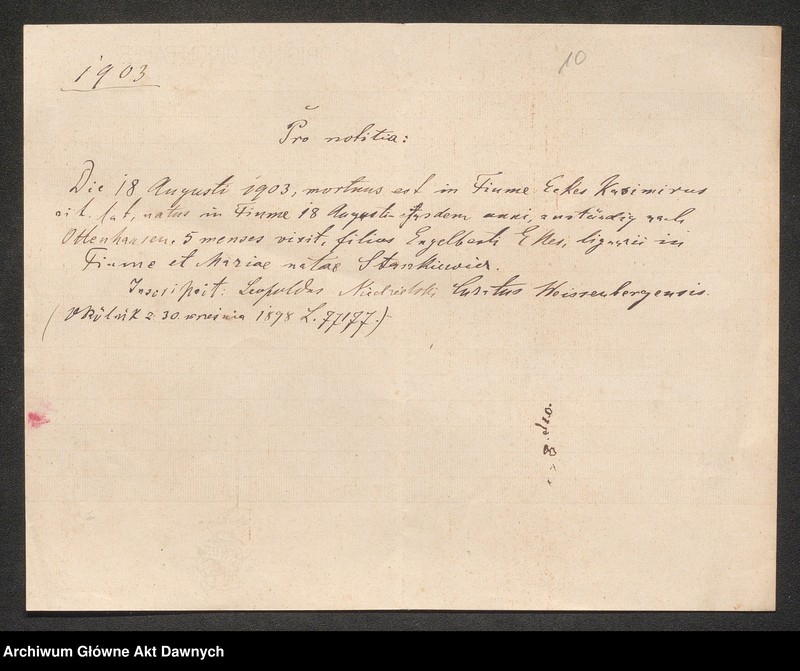 1903
10
Pro notitia:
Die 18 Augusti 1903, mortuus est in Fiume Eckes Kasimirus
rit. lat, natus in Fiume 18 Augusti ejusdem anni, zuständig nach
Ottenhausen, 5 menses vixit, filius Engelberti Ekes, lignarii in
Fiume et Mariae natae Stankiewicz.
Inscripsit: Leopoldus Niedzielski Curatus Weissenbergensis.
(Okólnik z 30. września 1898 L. 77177.)
Archiwum Główne Akt Dawnych